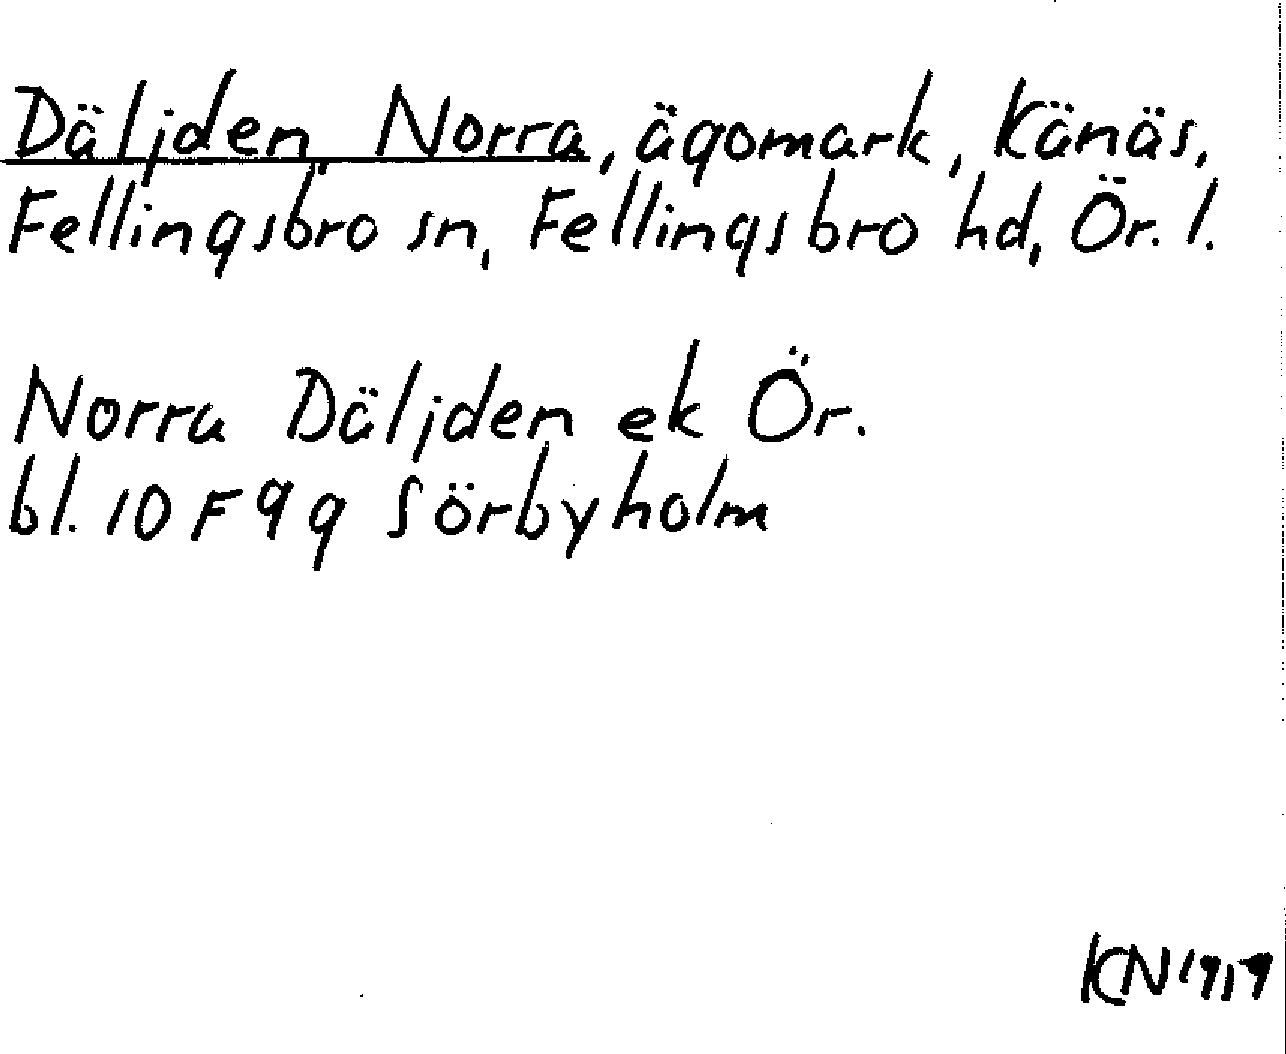 Däljden, Norra, ägomark, Känäs,
Fellingsbro sn, Fellingsbro hd, Ör. l.
Norra Däljden ek Ör.
bl. 10 F 9 g Sörbyholm